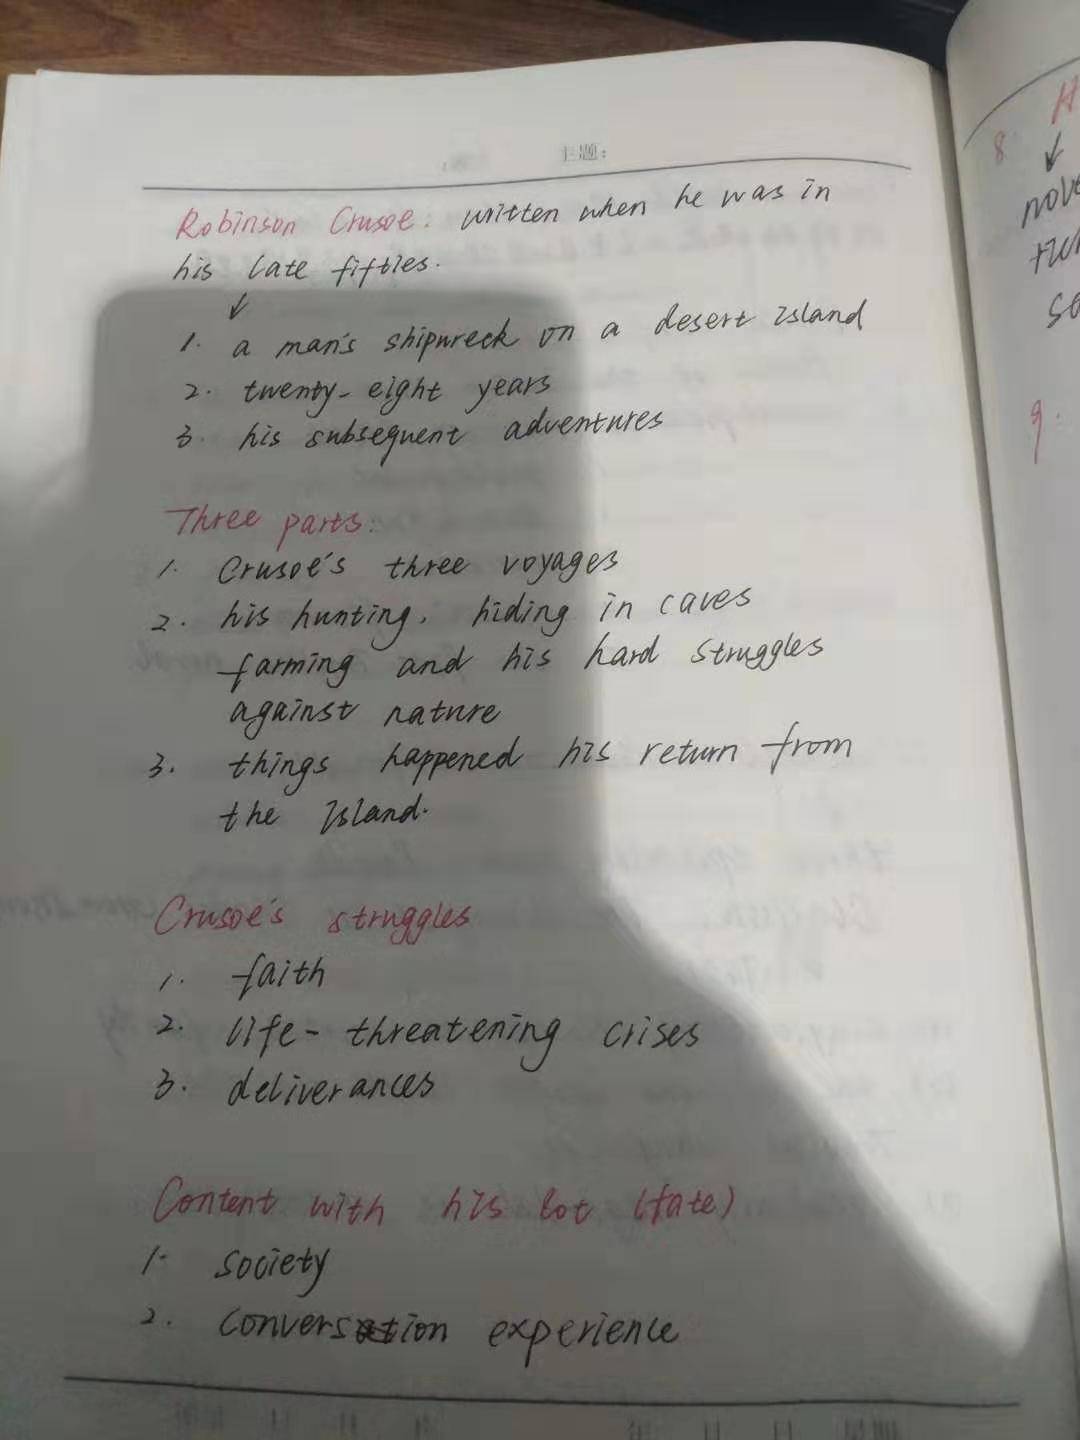 主题:
Robinson Crusoe: written when he was in
his late fifties.
↓
1. a man's shipwreck on a desert island
2. twenty-eight years
3. his subsequent adventures
Three parts:
1. Crusoe's three voyages
2. his hunting, hiding in caves
farming and his hard struggles
against nature
3. things happened his return from
the island.
Crusoe's struggles
1. faith
2. life-threatening crises
3. deliverances
Content with his lot (fate)
1. society
2. conversion experience
8. H
↓
9.